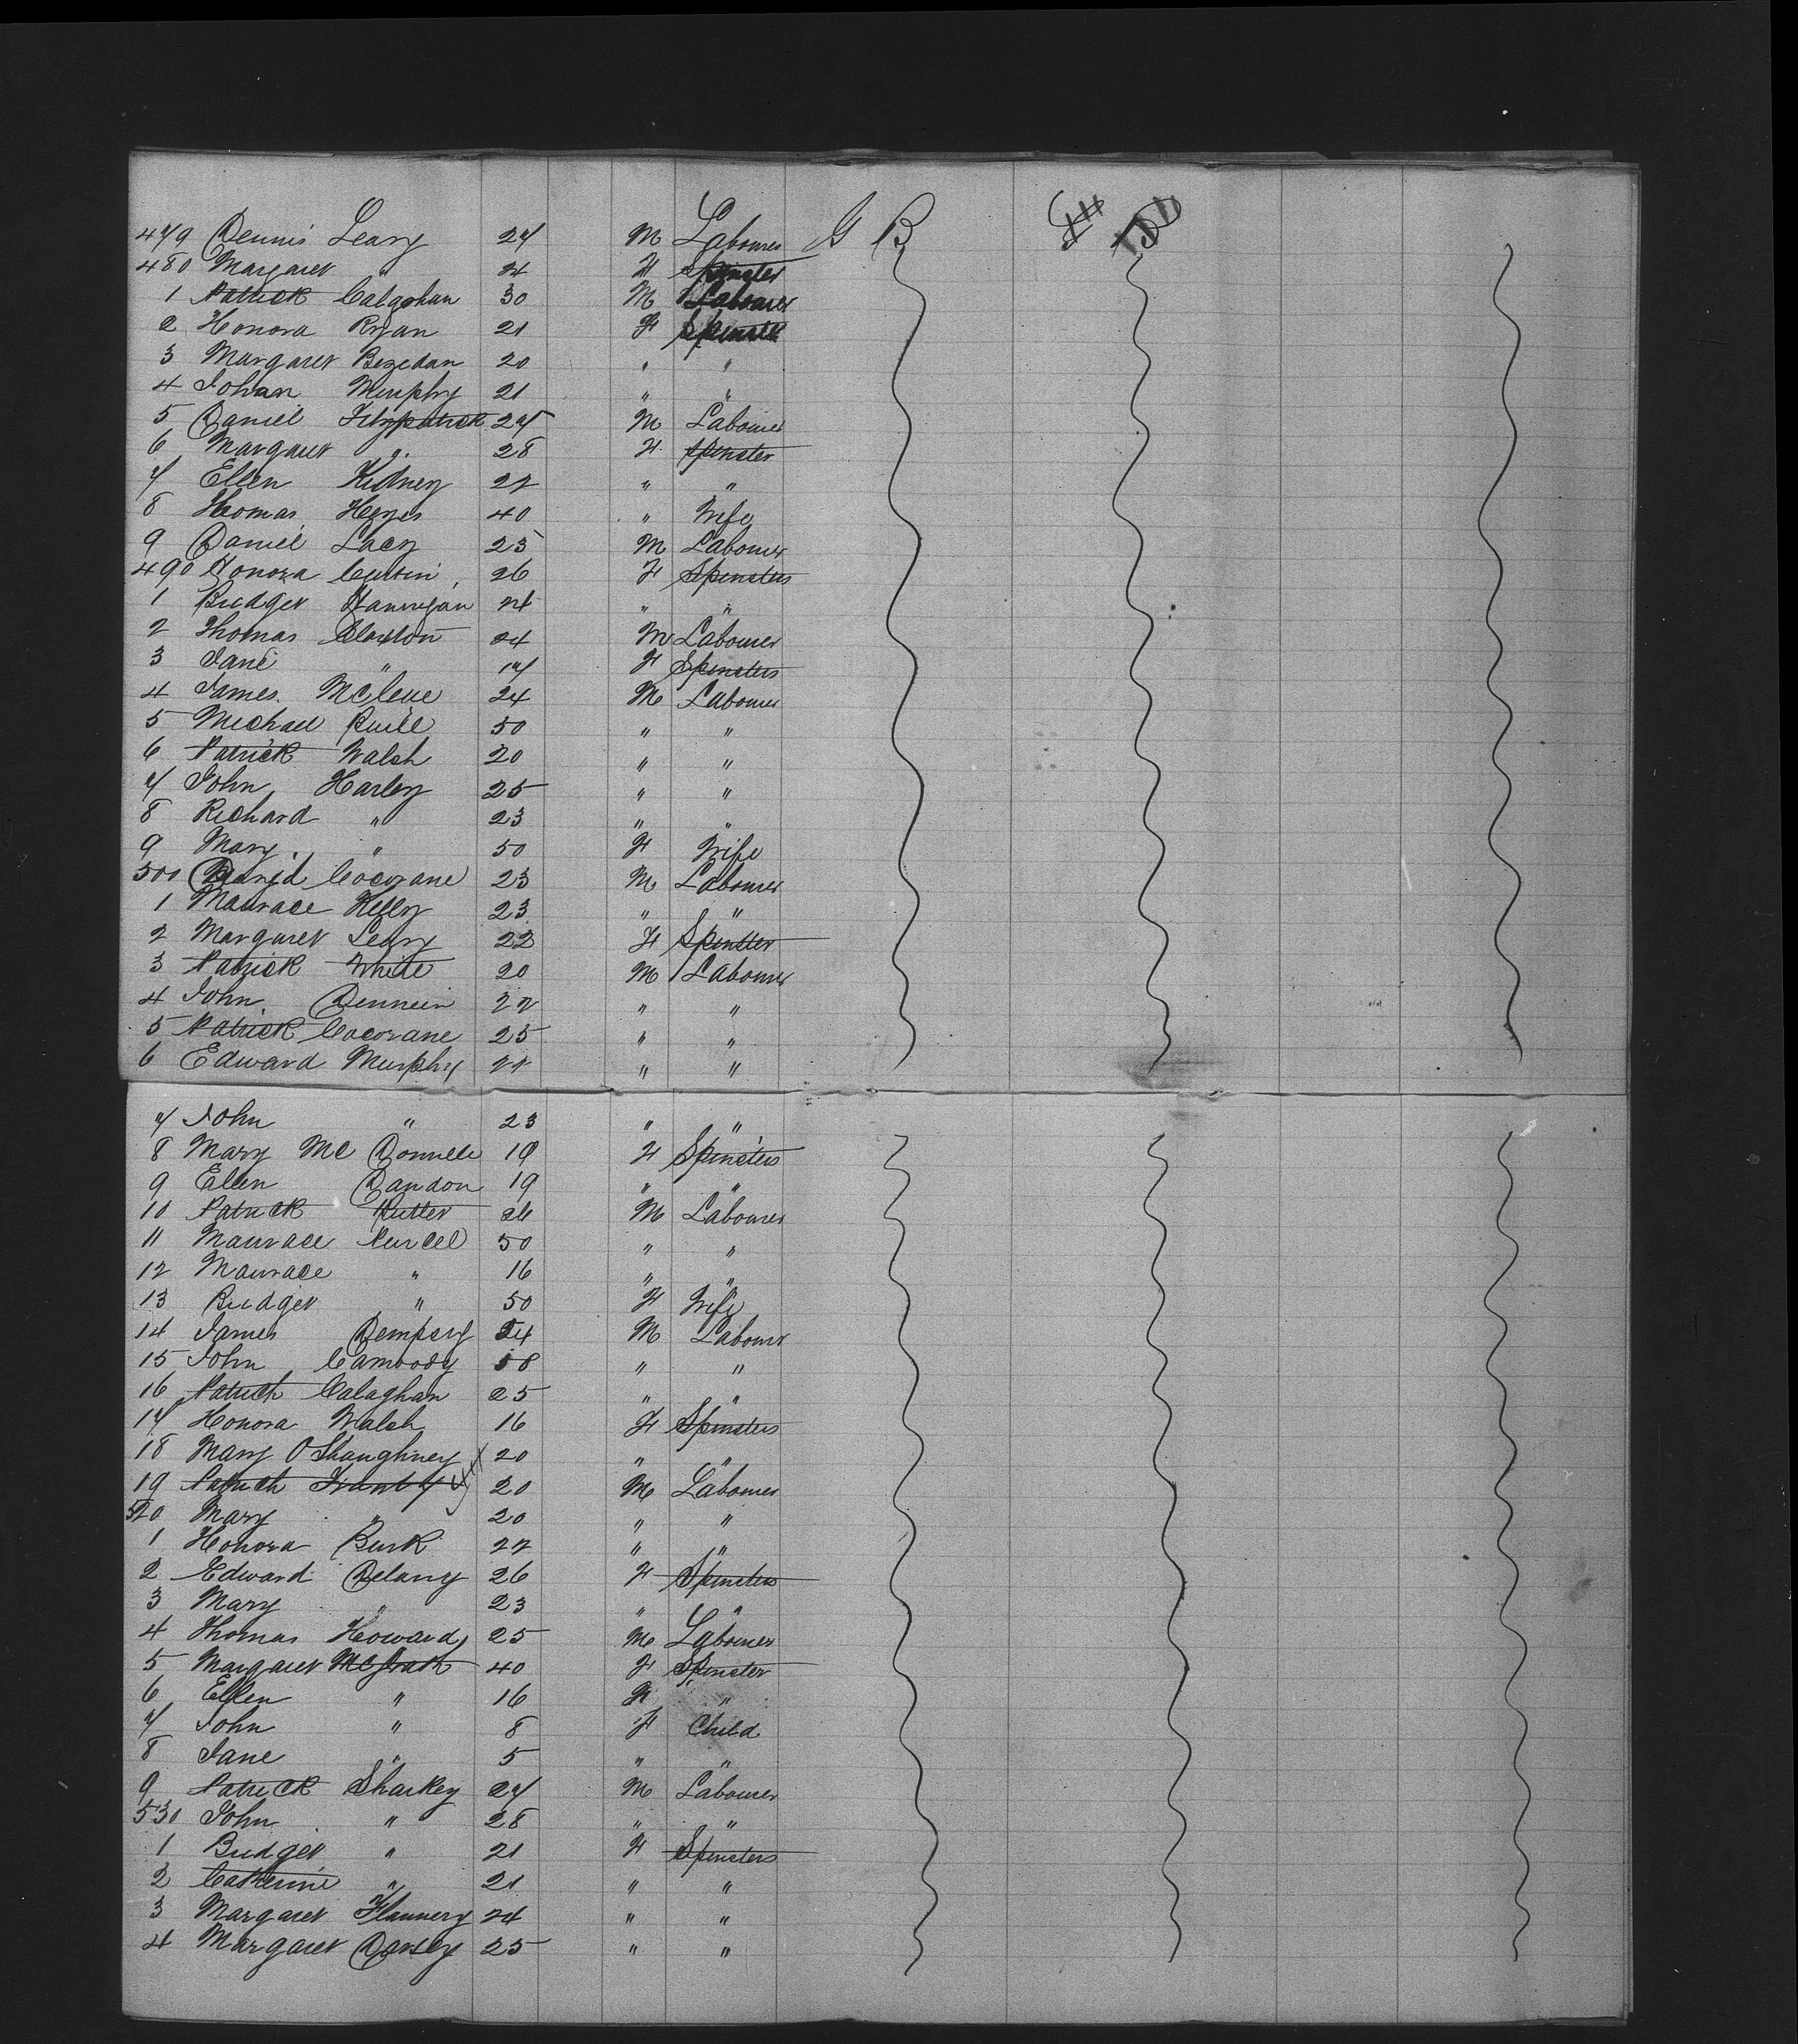 479 Dennis Leary 27 M Labourer G B
480 Margaret " 24 F Spinster
1 Patrick Calaghan 30 M Labourer
2 Honora Ryan 21 F Spinster
3 Margaret 20 " "
4 Johan Murphy 21 " "
5 Daniel Fitzpatrick 27 M Labourer
6 Margaret " 28 F Spinster
7 Ellen Kidney 22 " "
8 Thomas Heyes 40 " Wife
9 Daniel Lacy 25 M Labourer
490 Honora 26 F Spinsters
1 Bridget Hannigan 24 " "
2 Thomas Claxton 24 M Labourer
3 Jane " 17 F Spinsters
4 James 24 M Labourer
5 Michael 50 " "
6 Patrick Walsh 20 " "
7 John Harley 25 " "
8 Richard " 23 " "
9 Mary " 50 F Wife
500 David Cocorane 23 M Labourer
1 Maurace Kelly 23 " "
2 Margaret Leary 22 F Spinster
3 Patrick White 20 M Labourer
4 John 22 " "
5 Patrick Cocorane 25 " "
6 Edward Murphy 22 " "
7 John " 23 " "
8 Mary Mc Donnell 19 F Spinsters
9 Ellen Dandon 19 " "
10 Patrick Rutter 26 M Labourer
11 Maurace Purcel 50 " "
12 Maurace " 16 " "
13 Bridget " 50 F Wife
14 James Dempsey 24 M Labourer
15 John Camoody 18 " "
16 Patrick Calaghan 25 " "
17 Honora Walsh 16 F Spinsters
18 Mary O'Shaughney 20 " "
19 Patrick 20 M Labourer
520 Mary " 20 " "
1 Honora Burk 22 " "
2 Edward Delany 26 F Spinsters
3 Mary " 23 " "
4 Thomas Howard 25 M Labourer
5 Margaret McGrath 40 F Spinster
6 Ellen " 16 "
7 John " 8 F Child
8 Jane " 5 " "
9 Patrick Sharkey 27 M Labourer
530 John " 28 " "
1 Bridget " 21 F Spinsters
2 Catherine " 21 " "
3 Margaret Flannery 24 " "
4 Margaret Darsey 25 " "